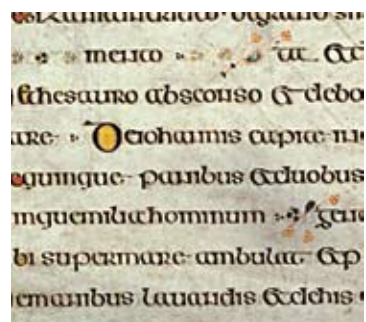 thesauro absconso & debo
are De iohannis capite in
quinque panibus & duobus
inquemilia hominum
bi supermare ambulat & p
emanibus lauandis & dehis